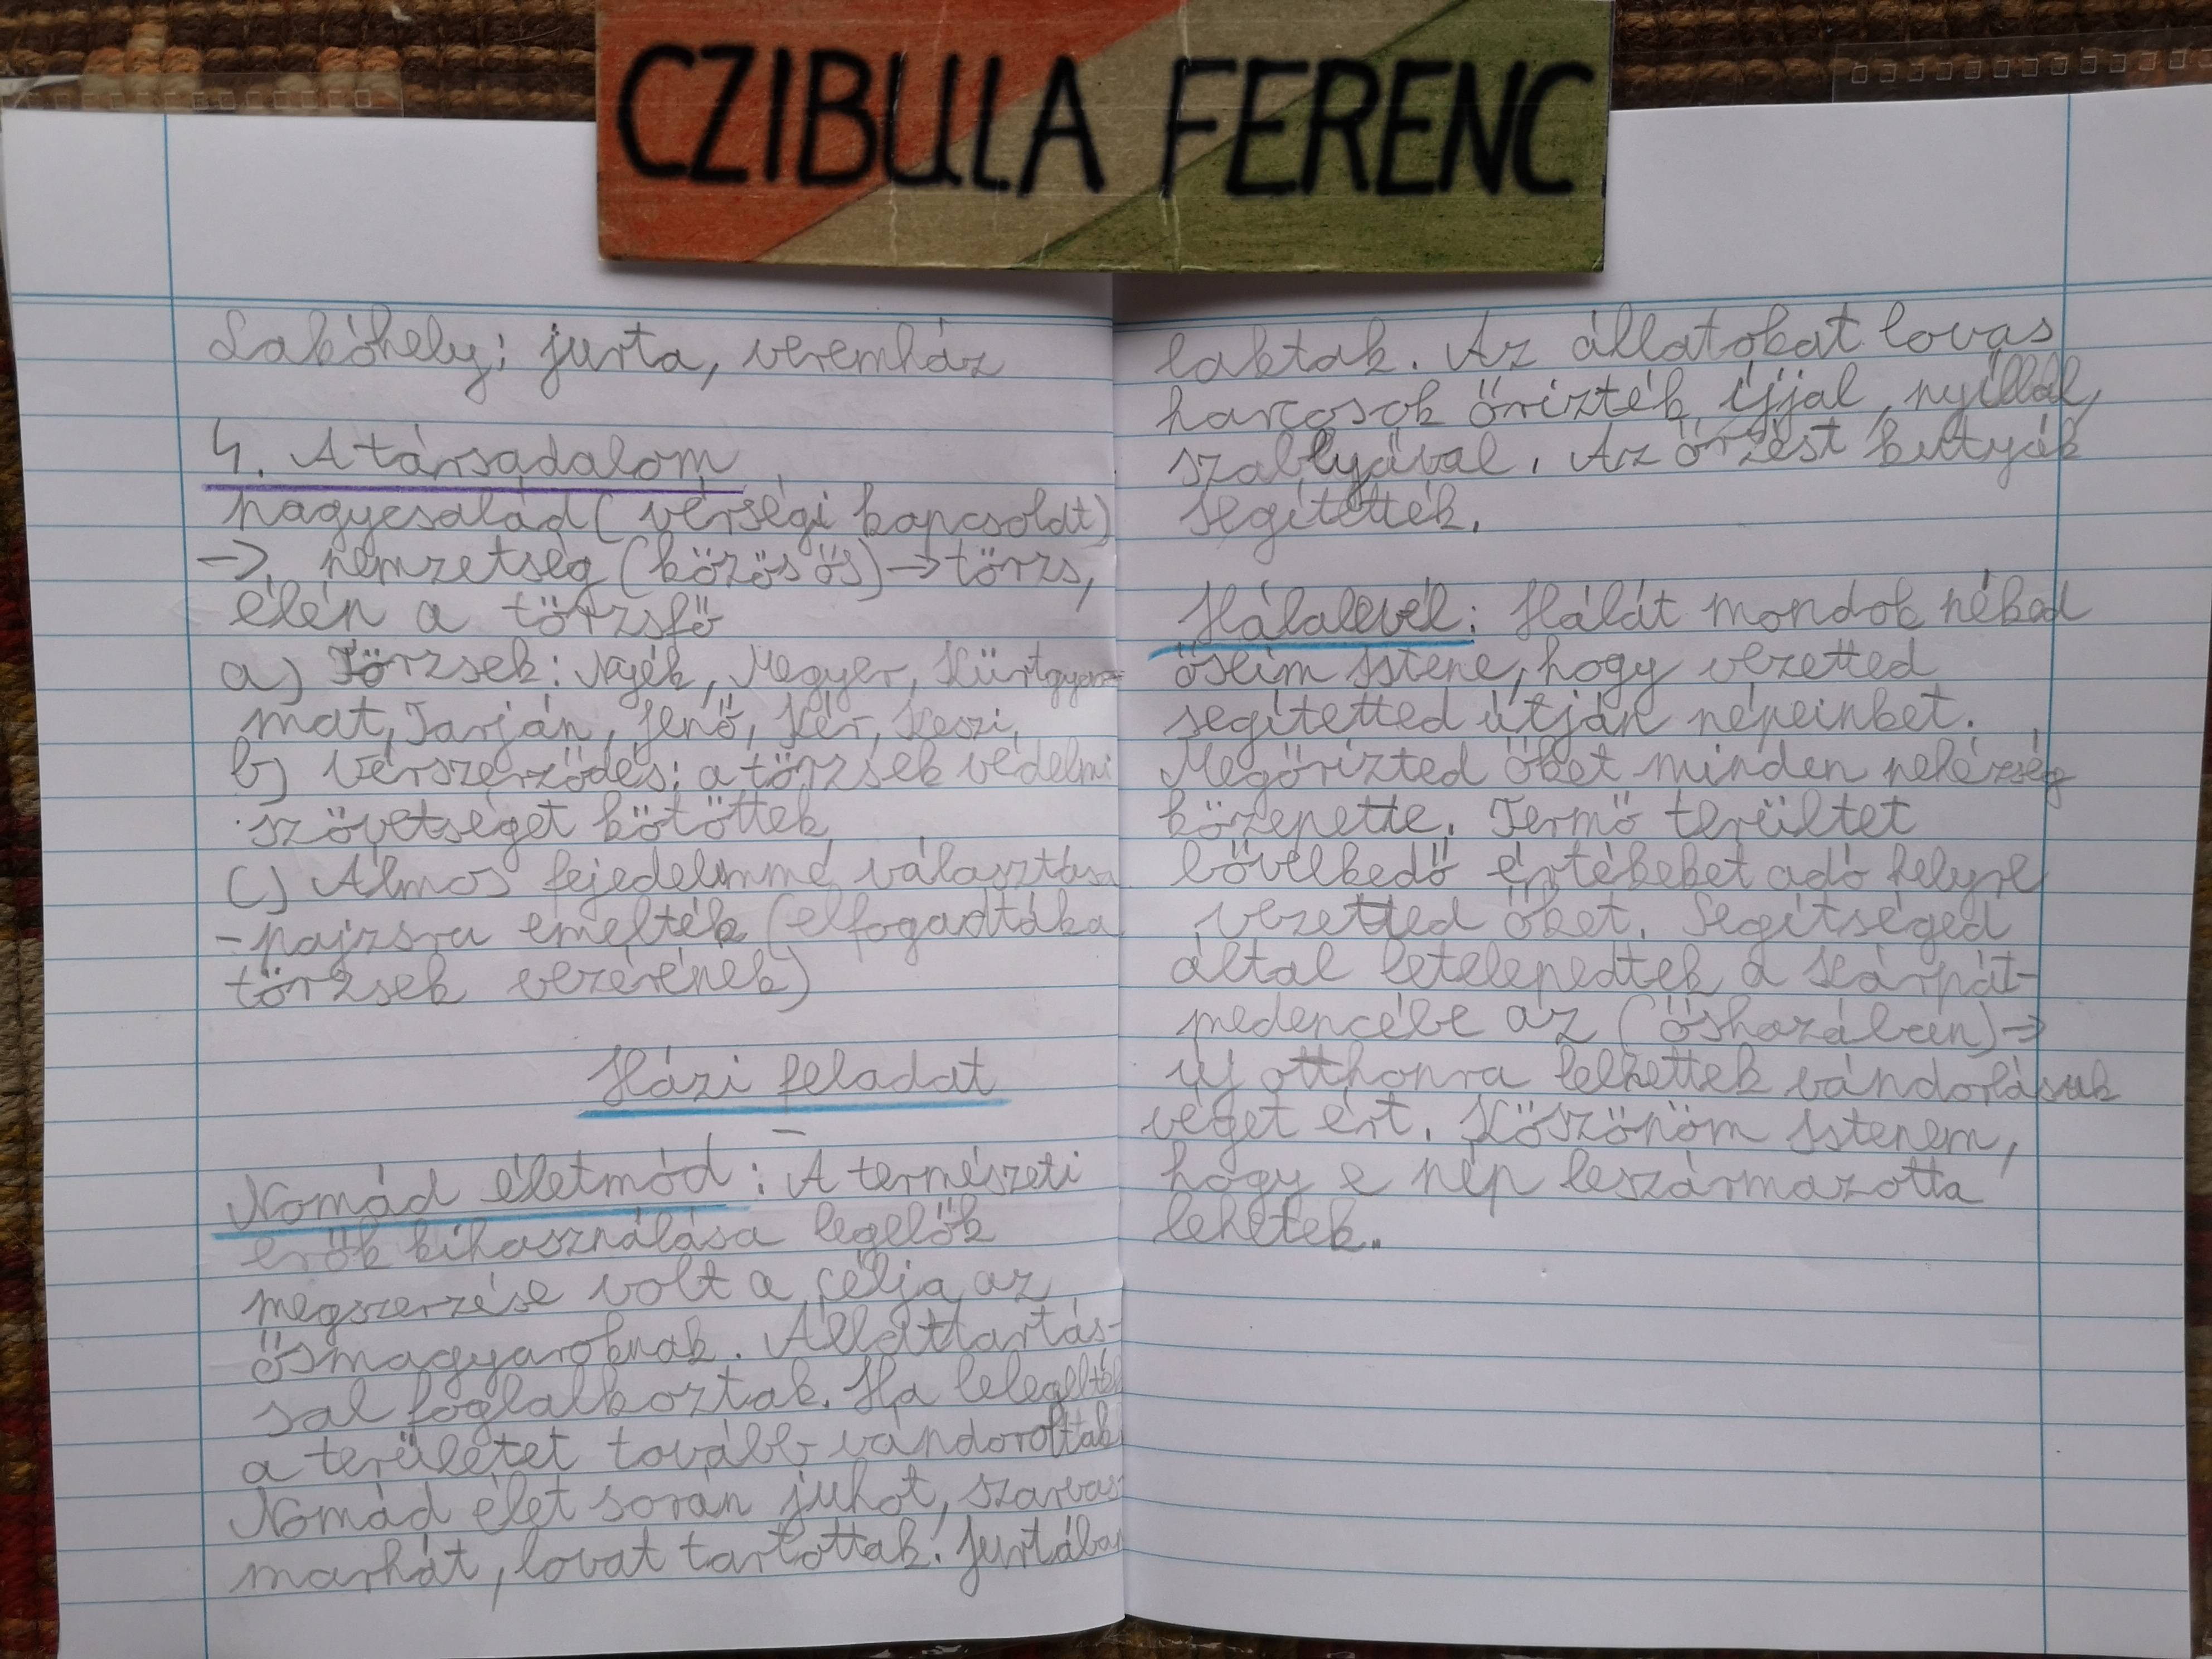 CZIBULA FERENC
Lakóhely: jurta, veremház
4. A társadalom
nagycsalád (vérségi kapcsoldt)
→ nemzetség (közös ős) → törzs,
élén a törzsfő
a) Törzsek: Nyék, Megyer, Kürtgyar-
mat, Tarján, Jenő, Kér, Keszi,
b) Vérszerződés: a törzsek védelmi
szövetséget kötöttek
c) Álmos fejedelemmé választása
- pajzsra emelték (elfogadták a
törzsek vezérének)
Házi feladat
Nomád életmód: A természeti
erők kihasználása legelők
megszerzése volt a célja az
ősmagyaroknak. Állattartás-
sal foglalkoztak. Ha lelegelték
a területet tovább vándoroltak
Nomád élet során juhot, szarvas-
marhát, lovat tartottak. Jurtában
laktak. Az állatokat lovas
harcosok őrizték íjjal, nyíllal,
szablyával. Az őrzést kuttyák
segítették.
Hálalevél: Hálát mondok néked
őseim Istene, hogy vezetted
segítetted útján népeinket.
Megőrizted őket minden nehézség
közepette. Termő terültet
bővelkedő értékeket adó helyre
vezetted őket. Segítséged
által letelepedtek a Kárpát-
medencébe az (őshazában) →
új otthonra lelhettek vándorlásuk
véget ért. Köszönöm Istenem,
hogy e nép leszármazotta
lehetek.